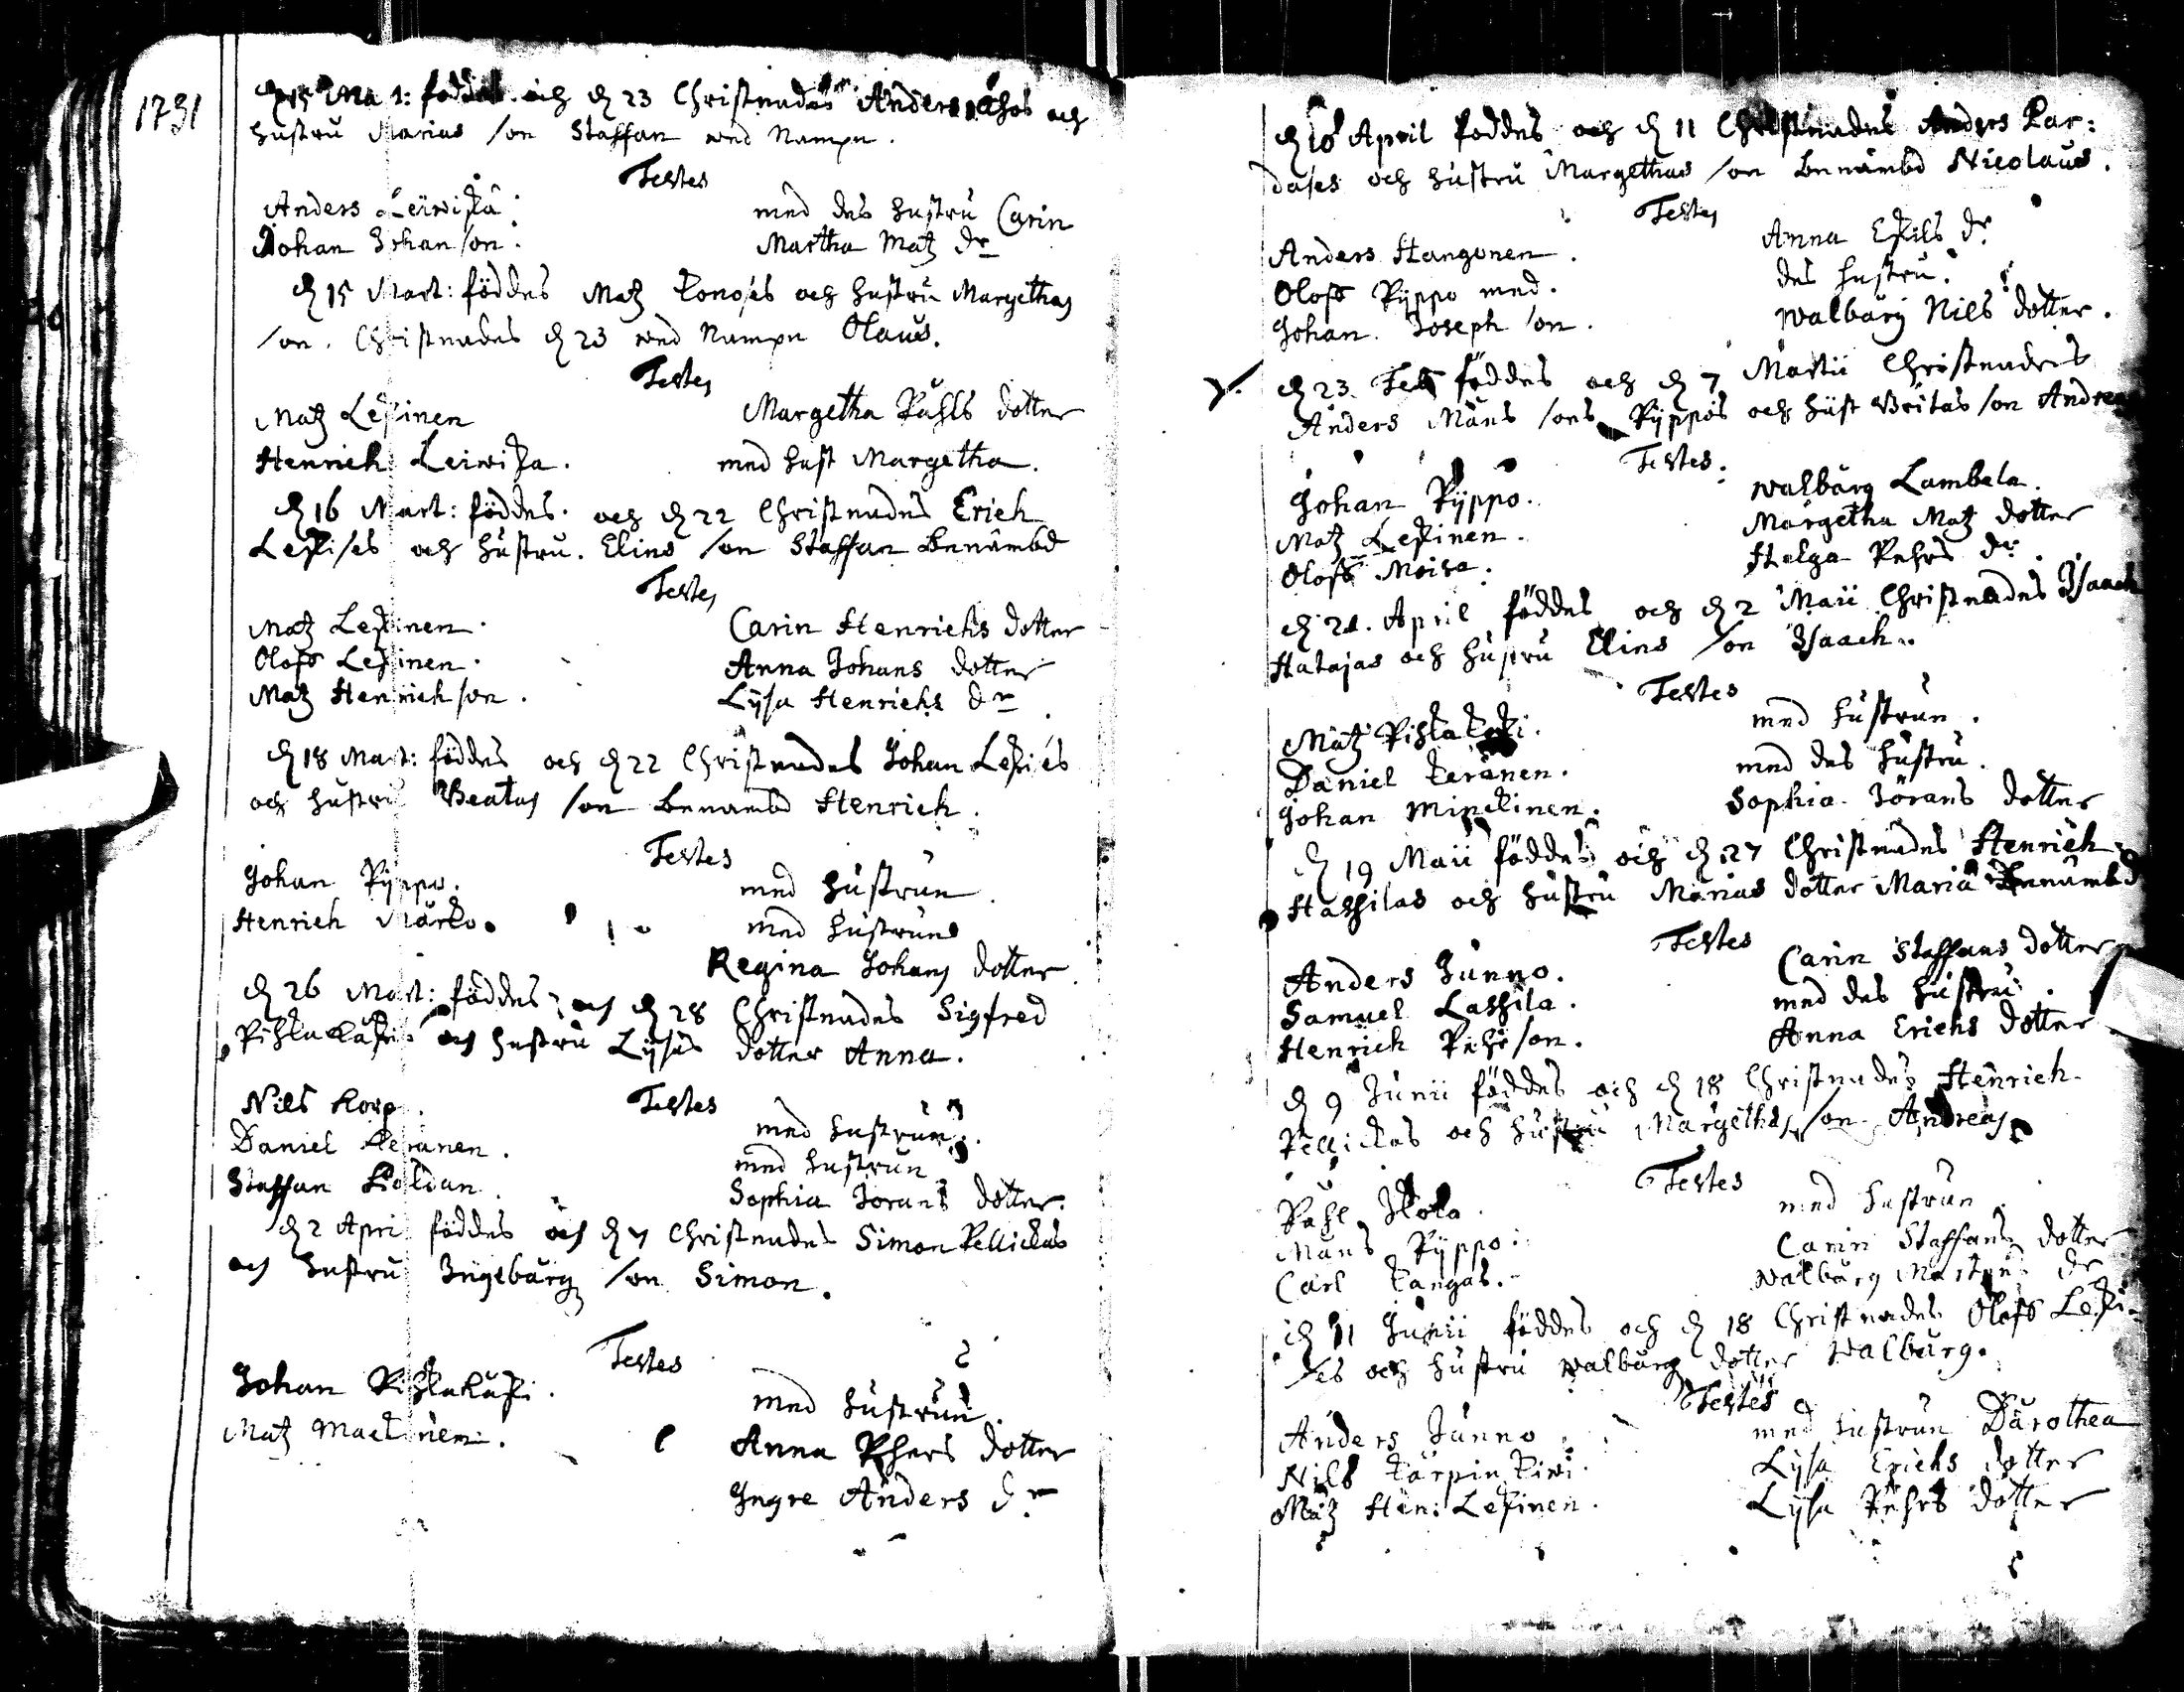 1731
d 15 Ma 1: föddes och d 23 Christnades Anders och
hustru Marias son Staffan wed Nampn.
Testes
Anders Leiwiskä med des hustru Carin
Johan Johanson. Martha Matz dr
d 15 Mart: föddes Matz Konoses och hustru Margethas
son. Christnades d 23 wed Nampn Olaus.
Testes
Matz Leskinen Margetha Påhls dotter
Henrich Leiwiska. med hust Margetha.
d 16 Mart: föddes och d 22 Christnades Erich
Leskises och hustru Elins son Staffan Benämbd
Testes
Matz Leskinen. Carin Henrichs dotter
Oloff Leskinen. Anna Johans dotter
Matz Henrichson. Lysa Henrichs dr
d 18 Mart: föddes och d 22 Christnades Johan Leskies
och hustru Beatas son Benämbd Henrich.
Testes
Johan Pyppo. med hustrun.
Henrich Märko. med hustrun
Regina Johans dotter
d 26 Mart: föddes och d 28 Christnades Sigfred
och hustru Lysas dotter Anna.
Testes
Nils Korp. med hustrun.
Daniel Keränen. med hustrun
Staffan Sophia Jörans dotter.
d 2 Apri föddes och d 7 Christnades Simon Pellickas
och hustru Ingeburg son Simon.
Testes
Johan Pihlakaski. med hustrun.
Matz Anna Pehrs dotter
Ingre Anders dr
d 10 April föddes och d 11 Christnades Anders Kar:
dases och hustru Margethas son Benämbd Nicolaus.
Testes
Anders Hangonen. Anna Eskils dr
Oloff Pyppo med. des hustru.
Johan Joseph son. Walbårg Nils dotter.
d 23 Feb föddes och d 7 Martii Christnades
Anders Måns sons Pyppos och hust Britas son Andreas
Testes.
Johan Pyppo. Walbårg Lambela.
Matz Leskinen. Margetha Matz dotter
Oloff Moisa. Helga Pehrs dr.
d 21. April föddes och d 2 Maii Christnades Isaach
Hatajas och hustru Elins son Isaach.
Testes
Matz med hustrun.
Daniel Keränen. med des hustru.
Johan Minckinen. Sophia Jörans dotter
d 19 Maii föddes och d 27 Christnades Henrich
Hassilas och hustru Marias dotter Maria Benämbd
Testes
Anders Junno. Carin Staffans dotter
Samuel Lassila. med des hustru.
Henrich Pehrson. Anna Erichs dotter
d 9 Junii föddes och d 18 Christnades Henrich
Pellickas och hustru Margethas son Andreas
Testes
Påhl med hustrun.
Måns Pyppo. Carin Staffans dotter
Carl Kangas. Walbårg dr
d 11 Junii föddes och d 18 Christnades Oloff Leski-
ses och hustru Walbårg dotter Walbårg.
Testes
Anders Junno med hustrun Dårothea
Nils Kärpin Kiwi. Lysa Erichs dotter
Matz Hen: Leskinen. Lysa Pehrs dotter